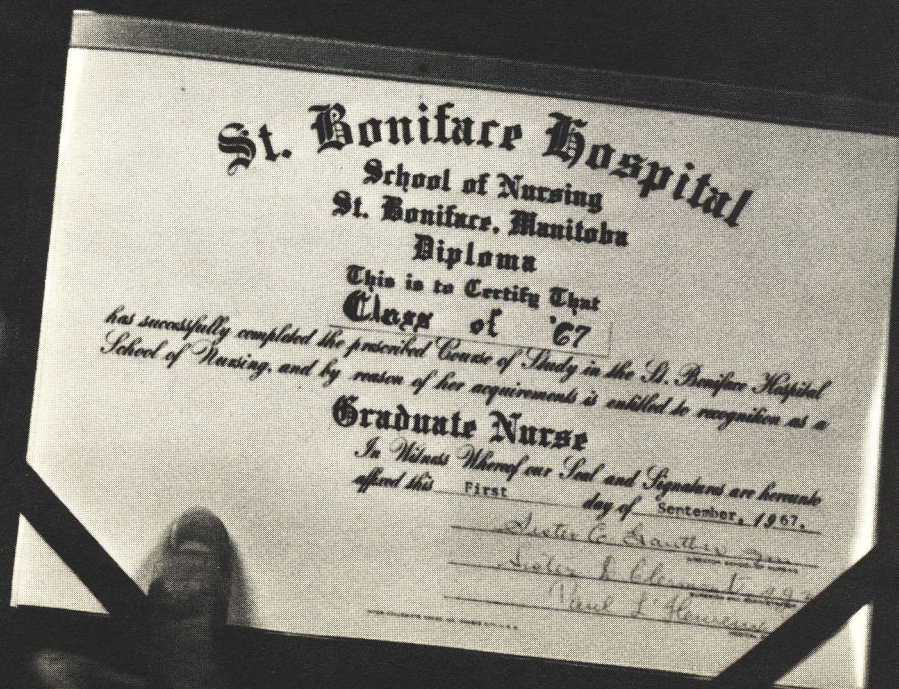 St. Boniface Hospital
School of Nursing
St. Boniface, Manitoba
Diploma
This is to Certify That
Class of '67
has successfully completed the prescribed Course of Study in the St. Boniface Hospital
School of Nursing, and by reason of her acquirements is entitled to recognition as a
Graduate Nurse
In Witness Whereof our Seal and Signatures are hereunto
affixed this First day of September, 1967.
Sister
Sister Clement
Paul